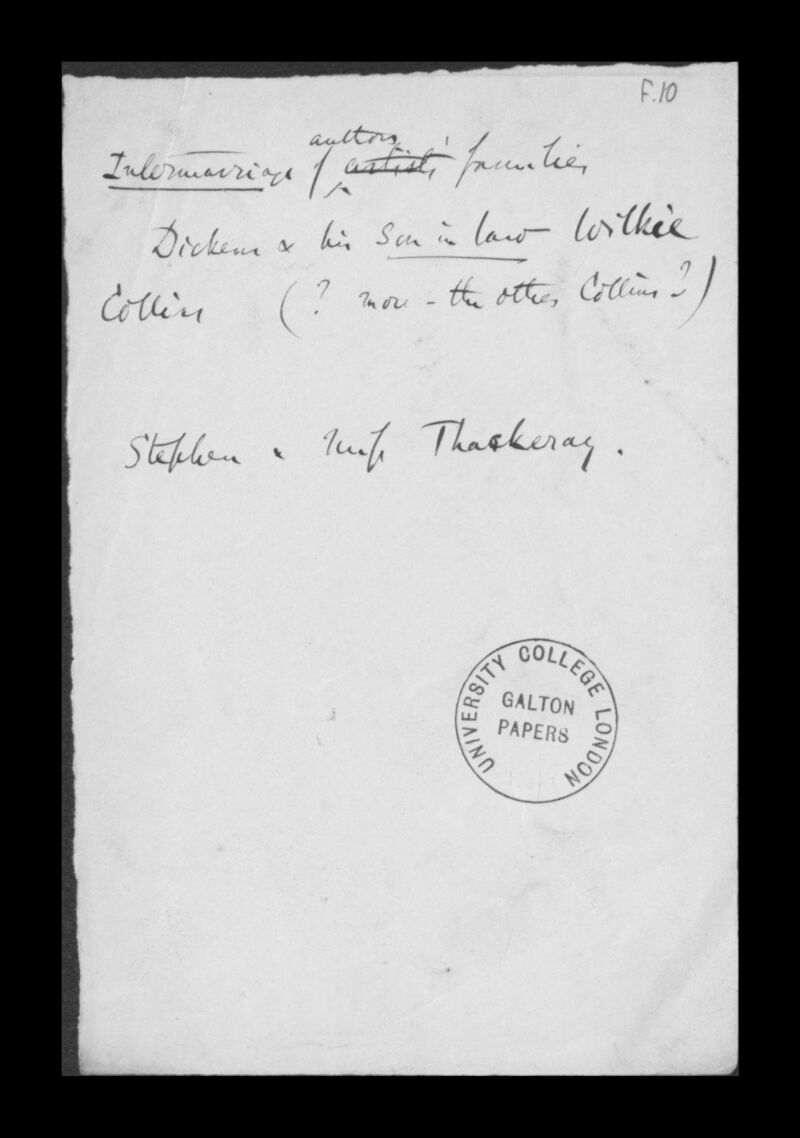 F.10
authors
Intermarriage of artists' families
Dickens & his Son in law Wilkie
Collins (? more - the other Collins?)
Stephen & Miss Thackeray.
UNIVERSITY COLLEGE LONDON
GALTON
PAPERS